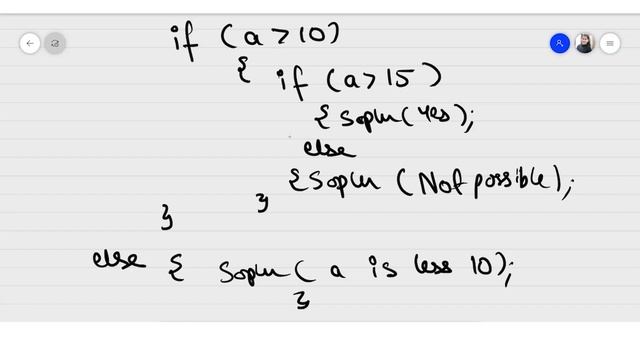 if (a>10)
{ if (a>15)
{ Sopln(Yes);
else
{ Sopln (Not possible);
}
}
else { Sopln( a is less 10);
}